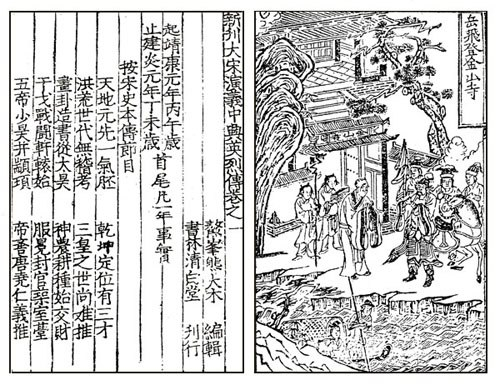 岳飛登金山寺
新刊大宋演義中興英烈傳卷之一
鰲峯熊大木 編輯
書林清白堂 刊行
起靖康元年丙午歲
止建炎元年丁未歲
首尾凡一年事實
按宋史本傳節目
天地元先一氣胚 乾坤定位有三才
洪荒世代無稽考 三皇之世尚难推
畫卦造書從太昊 神農耕種始交財
干戈戰鬪軒轅始 服冕封官築室臺
五帝少昊并顓頊 帝嚳唐堯仁義推